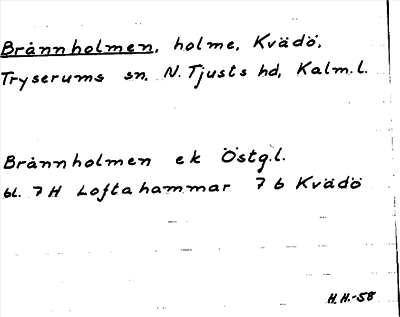 Brånnholmen, holme, Kvädö,
Tryserums sn, N. Tjusts hd, Kalm. l.
Brånnholmen ek Östg. l.
bl. 7 H Loftahammar 7 b Kvädö
H. H.-58